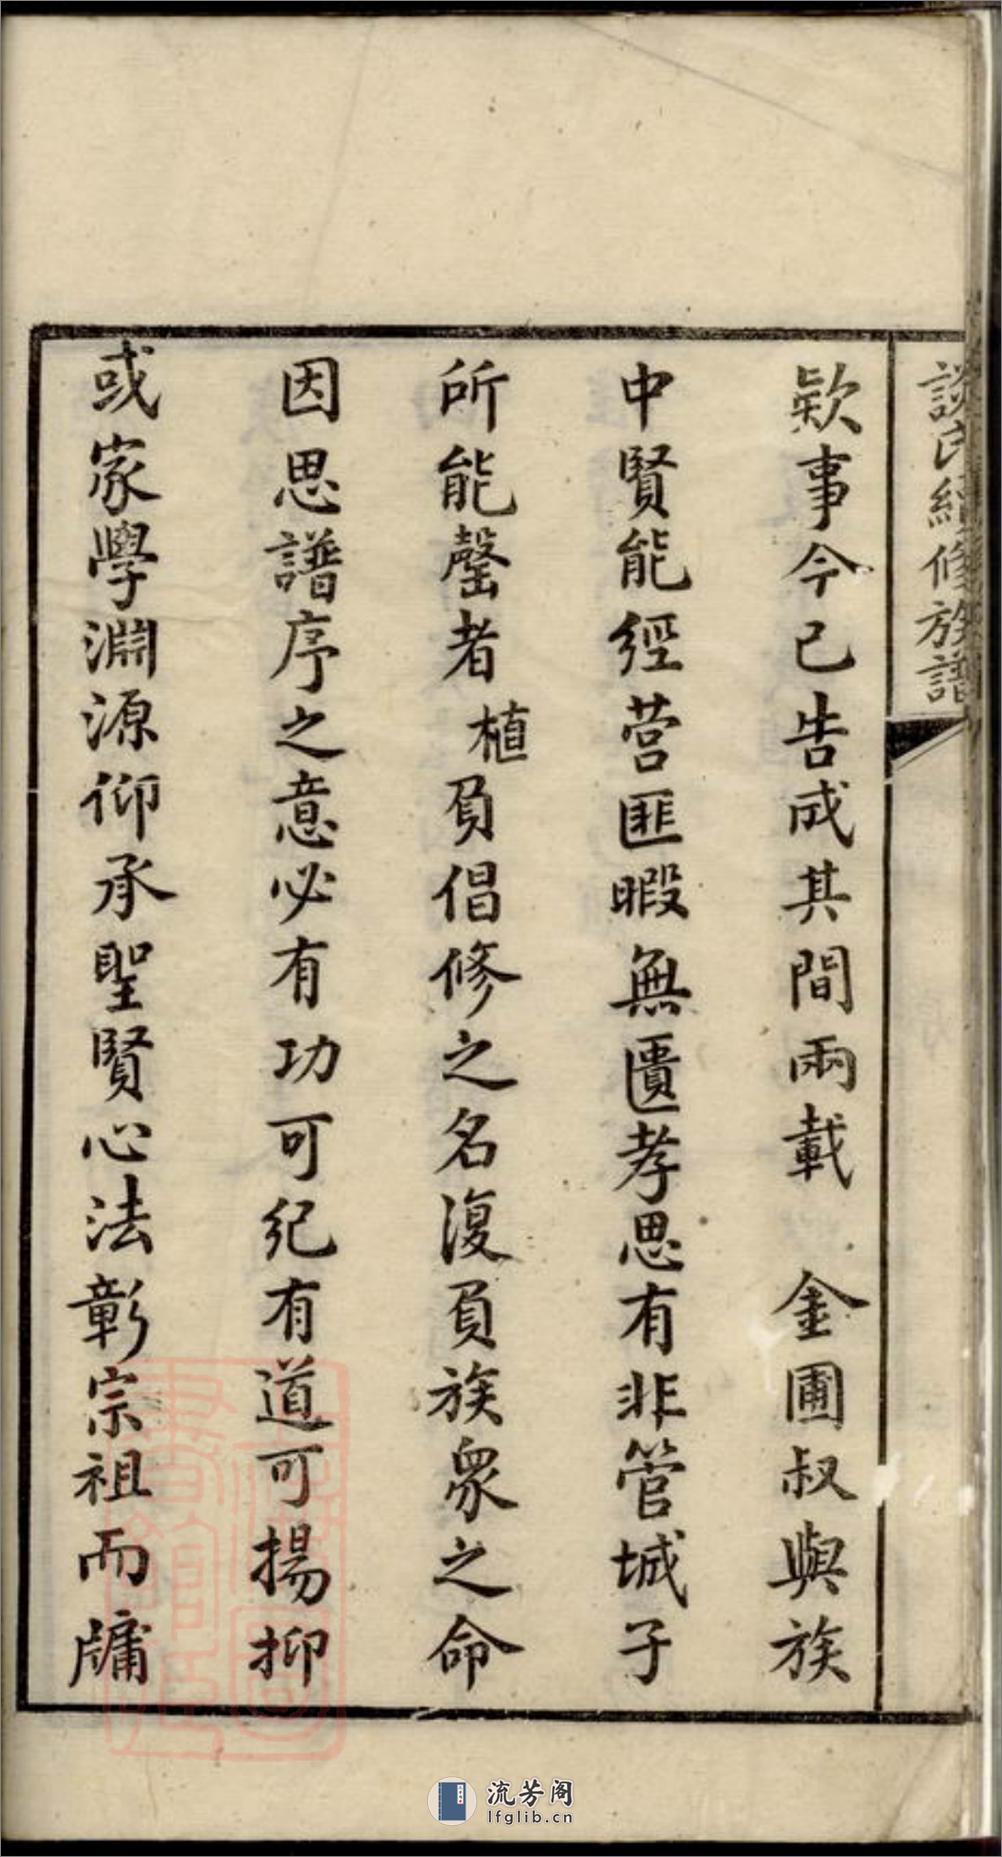 談氏續修族譜
欵事今已告成其間兩載　金圃叔與族
中賢能經营匪暇無匱孝思有非管城子
所能罄者植負倡修之名復負族衆之命
因思譜序之意必有功可纪有道可揚抑
或家學淵源仰承聖賢心法彰宗祖而牗
流芳阁
lfglib.cn